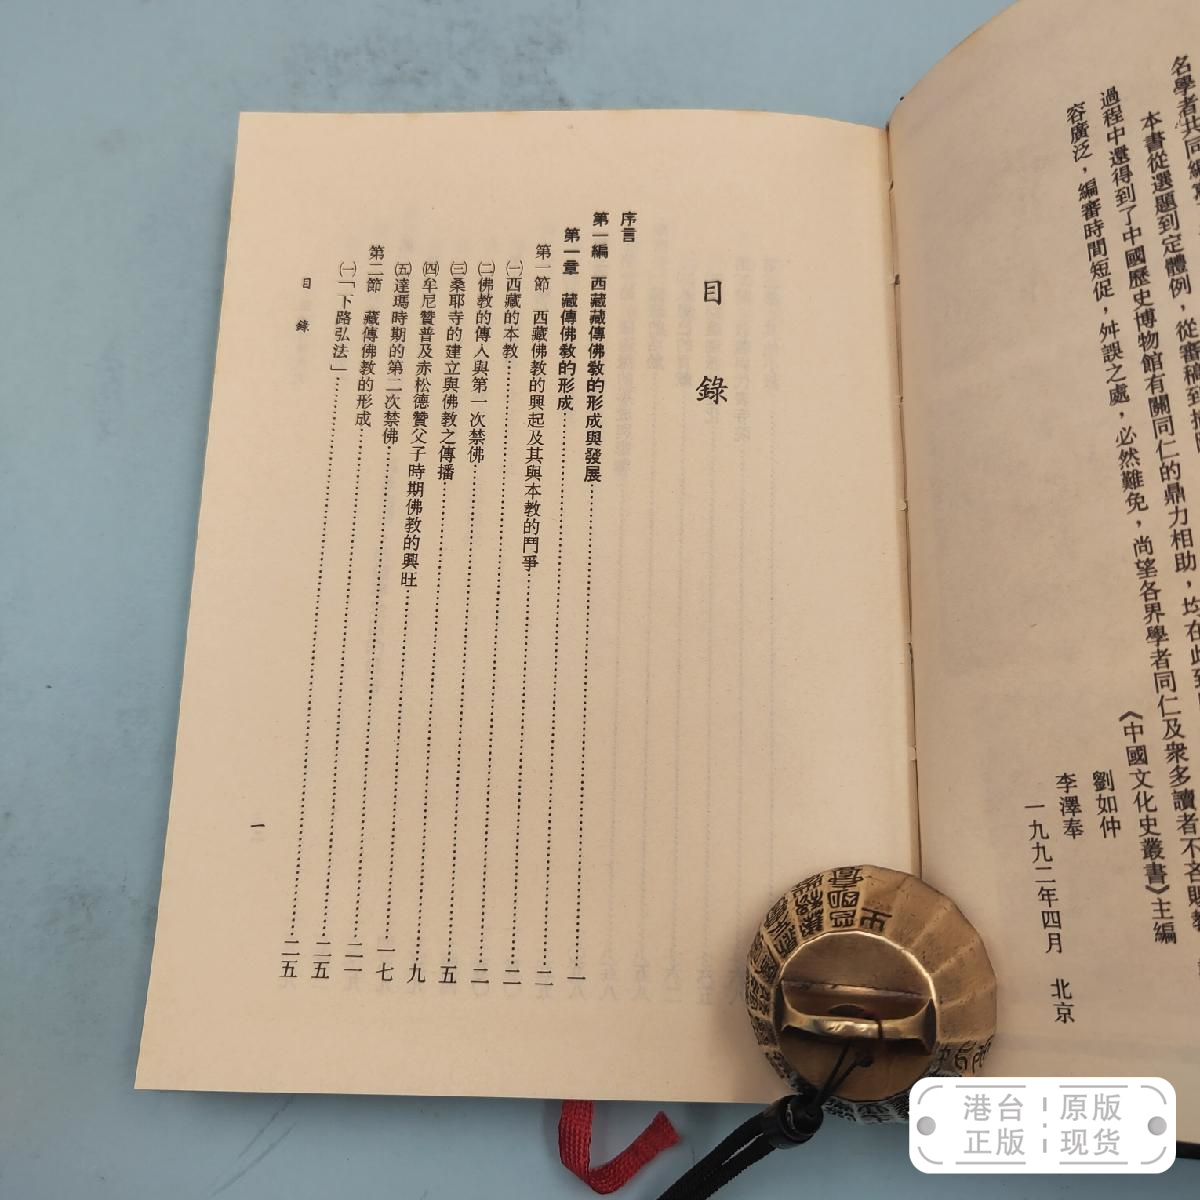 名學者共同編
本書從選題到定體例，從審稿到
過程中還得到了中國歷史博物館有關同仁的鼎力相助，均在此
容廣泛，編審時間短促，舛誤之處，必然難免，尚望各界學者同仁及衆多讀者不吝賜教
《中國文化史叢書》主編
劉如仲
李澤奉
一九九二年四月 北京
目錄
序言
第一編 西藏藏傳佛教的形成與發展……一
第一章 藏傳佛教的形成……二
第一節 西藏佛教的興起及其與本教的鬥爭……二
㈠西藏的本教……二
㈡佛教的傳入與第一次禁佛……五
㈢桑耶寺的建立與佛教之傳播……九
㈣牟尼贊普及赤松德贊父子時期佛教的興旺……一七
㈤達瑪時期的第二次禁佛……二一
第二節 藏傳佛教的形成……二五
㈠「下路弘法」……二五
目錄
一
港台 原版
正版 现货